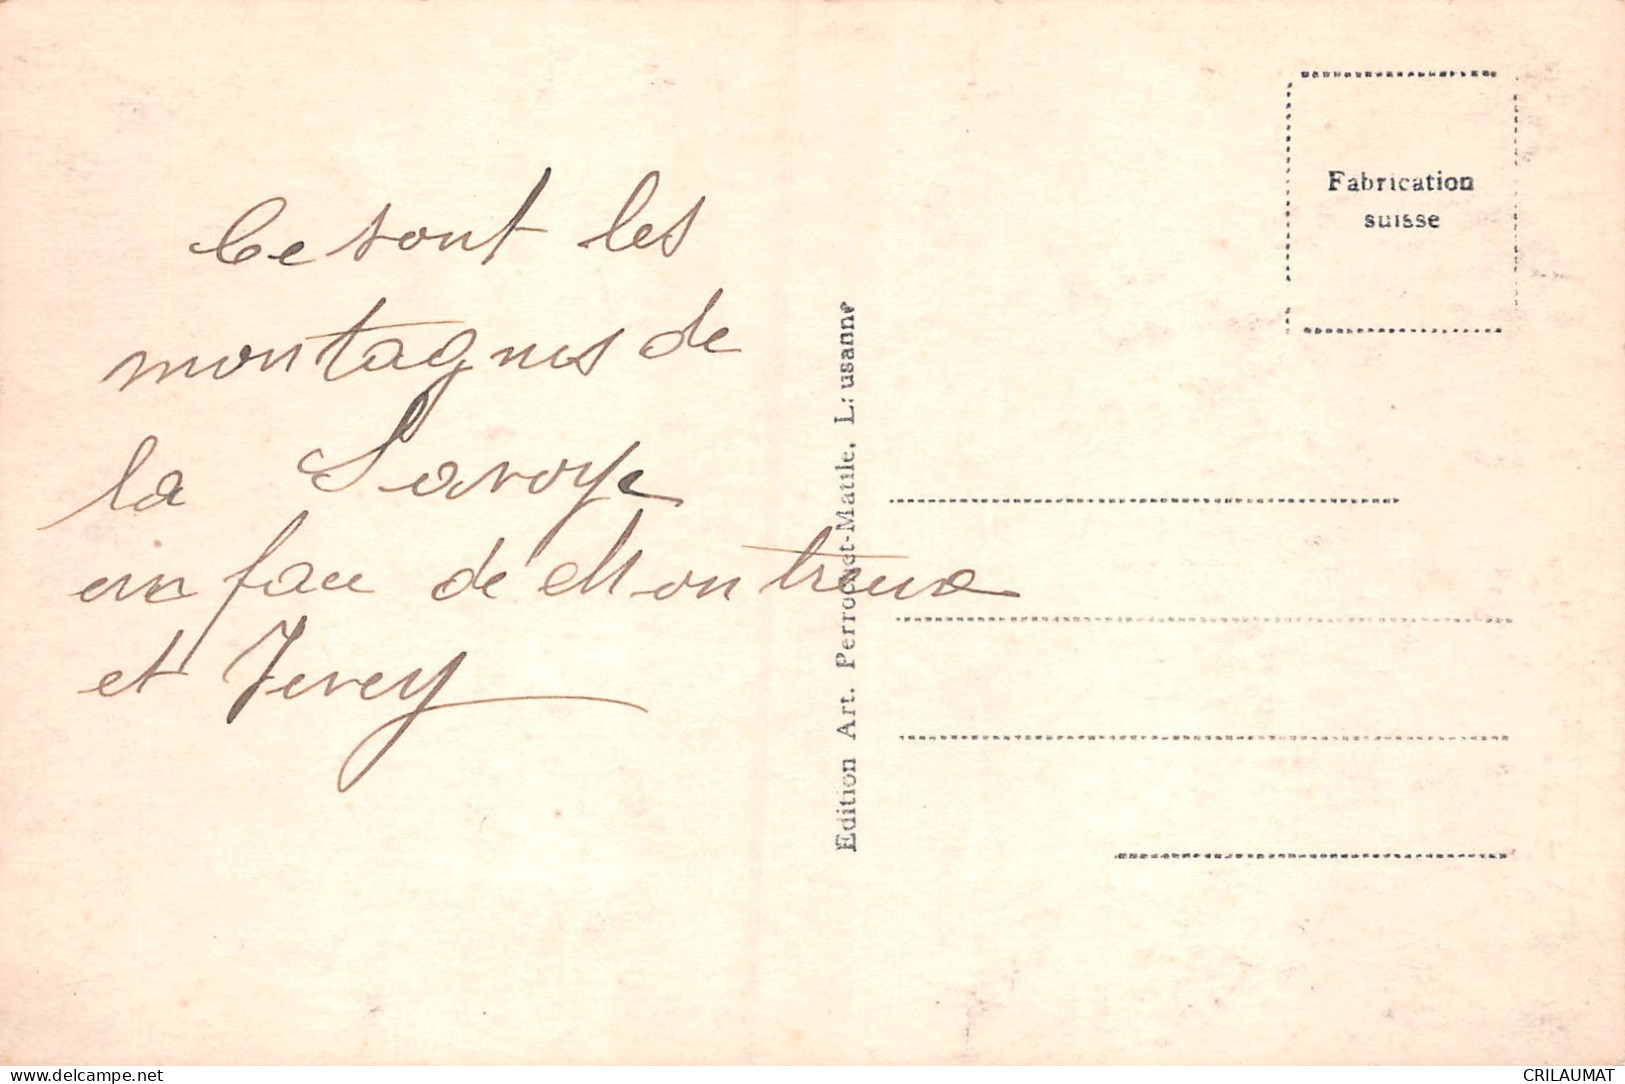 Ce sont les
montagnes de
la Savoye
en face de Montreux
et Vevey
Edition Art. Perrochet-Matile, Lausanne
Fabrication
suisse
www.delcampe.net
CRILAUMAT